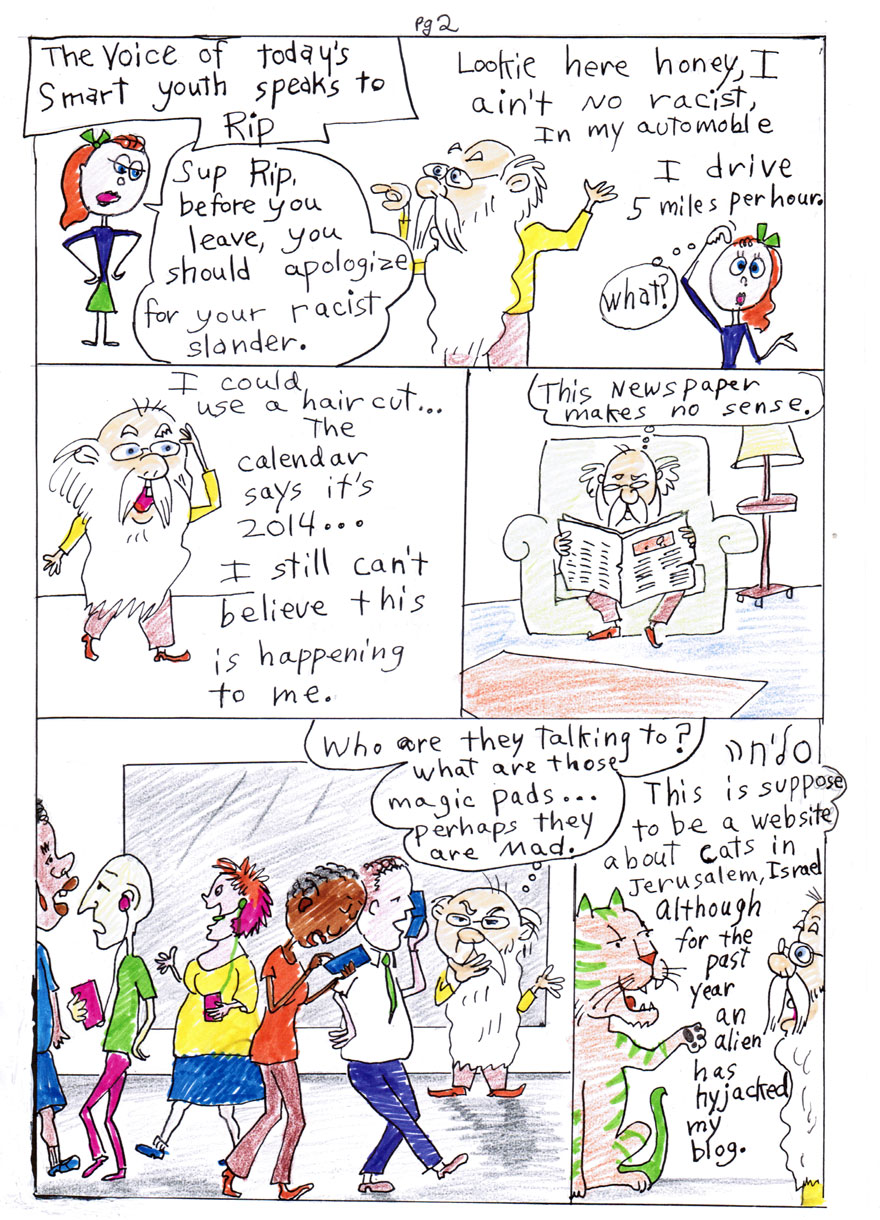 pg 2
The Voice of today's
Smart youth speaks to
Rip
Sup Rip,
before you
leave, you
should apologize
for your racist
slander.
Lookie here honey, I
ain't no racist,
In my automoble
I drive
5 miles per hour.
what?
I could
use a hair cut...
The
calendar
says it's
2014...
I still can't
believe this
is happening
to me.
This Newspaper
makes no sense.
Who are they talking to?
what are those
magic pads...
perhaps they
are mad.
סליחה
This is suppose
to be a website
about cats in
Jerusalem, Israel
although
for the
past
year
an
alien
has
hyjacked
my
blog.